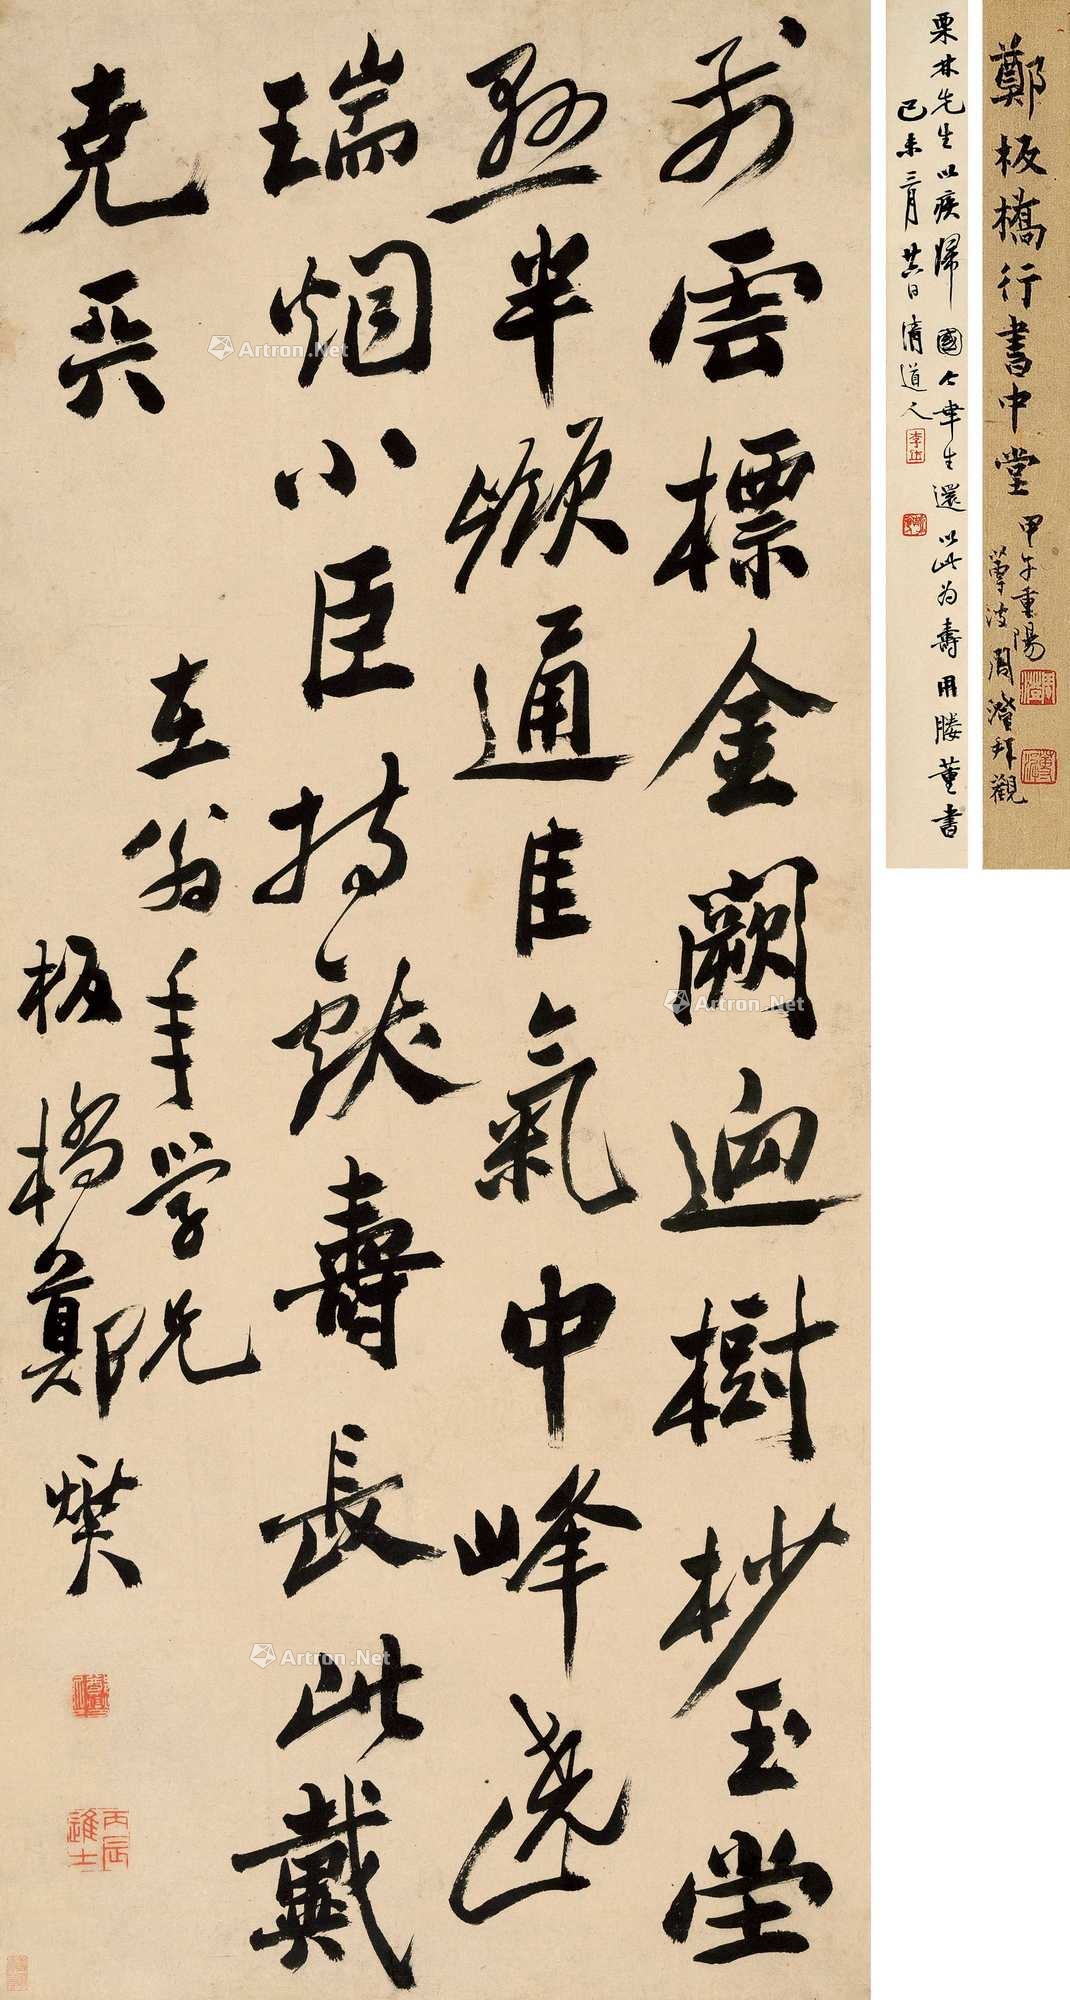 鄭板橋行書中堂
甲午重陽
蓴波周澄拜觀
栗林先生以疾歸 國七年生還以此為壽用媵董書
己未三月廿六日清道人
前雲標金闕迥樹杪玉堂
懸半嶺通佳氣中峰遶
瑞烟小臣持獻壽長此戴
堯兲
在翁年學兄
板橋鄭燮
丙辰進士
Artron.Net
Artron.Net
Artron.Net